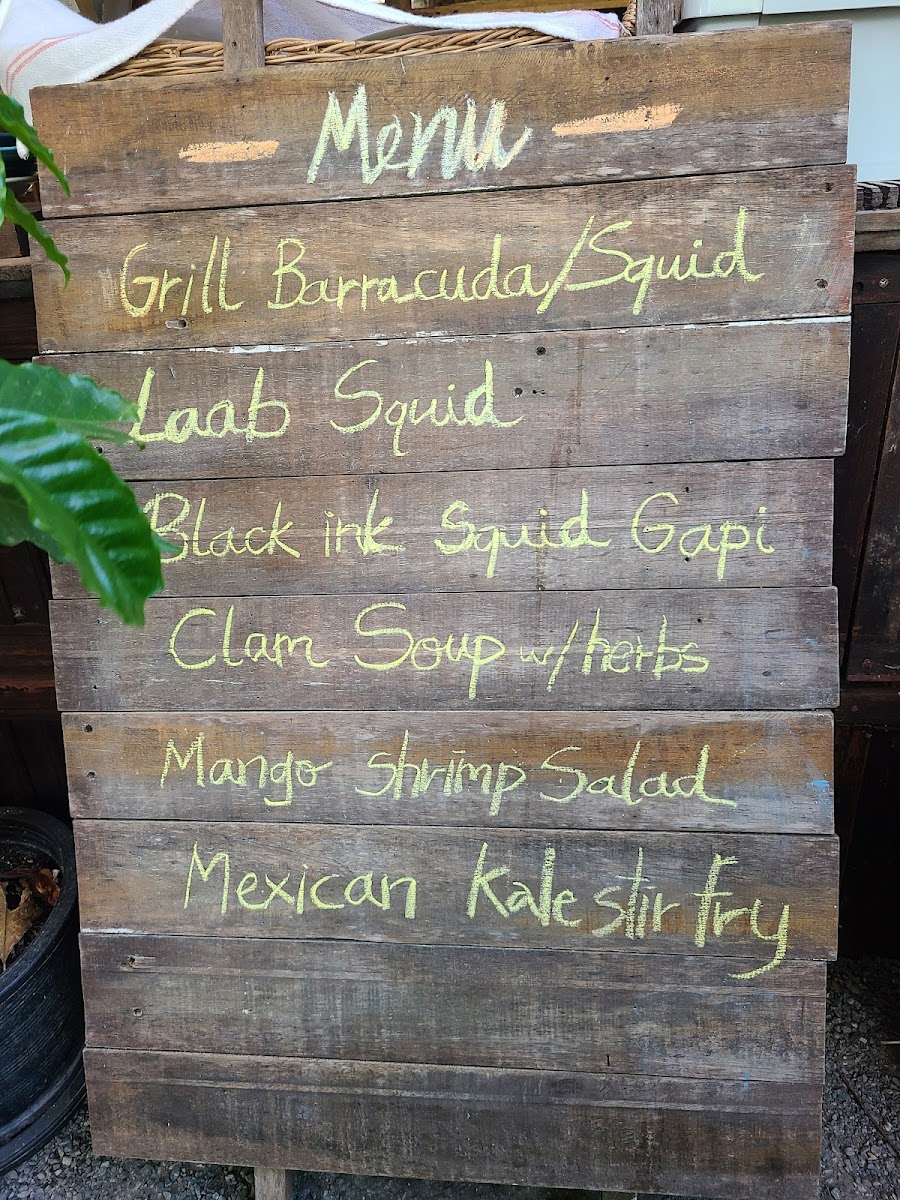 - Menu -
Grill Barracuda/Squid
Laab Squid
Black ink Squid Gapi
Clam Soup w/herbs
Mango shrimp Salad
Mexican Kale stir fry